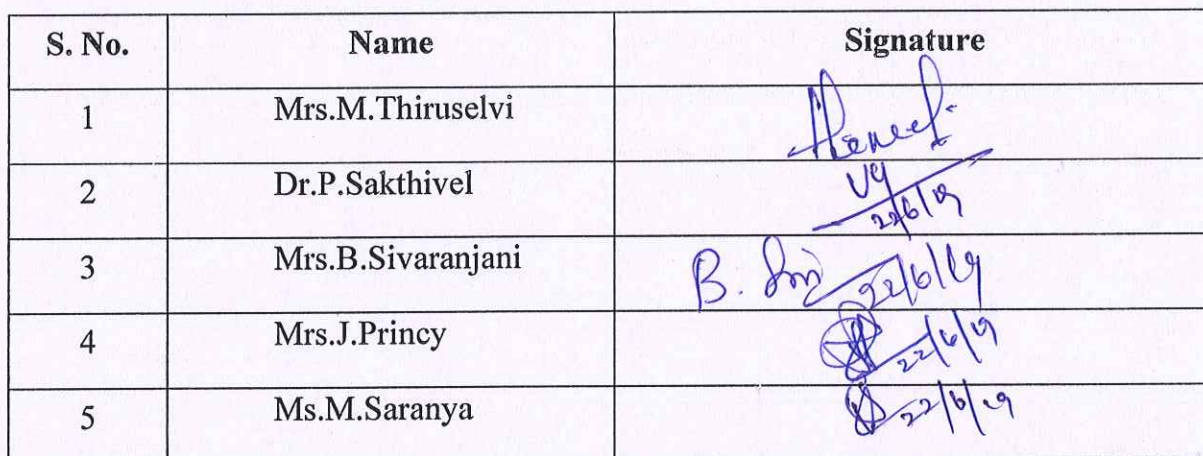 S. No. Name Signature
1 Mrs.M.Thiruselvi
2 Dr.P.Sakthivel 22/6/19
3 Mrs.B.Sivaranjani B. 22/6/19
4 Mrs.J.Princy 22/6/19
5 Ms.M.Saranya 22/6/19